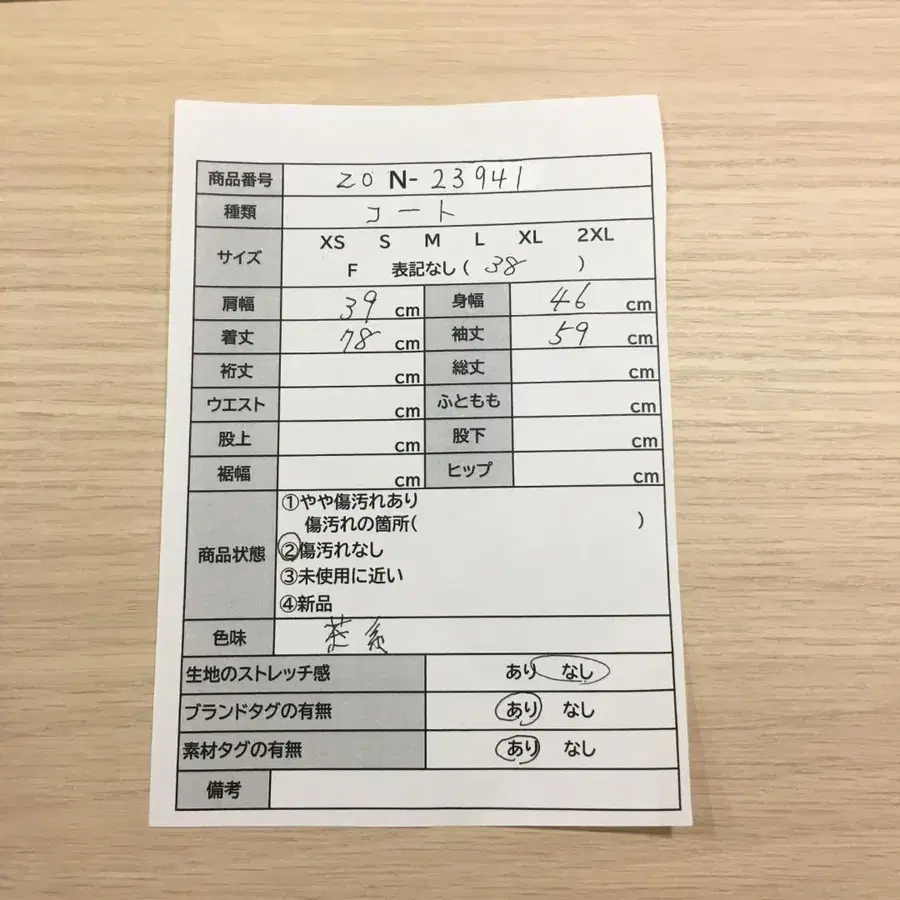 商品番号 ZO N-23941
種類 コート
サイズ XS S M L XL 2XL
F 表記なし( 38 )
肩幅 39 cm 身幅 46 cm
着丈 78 cm 袖丈 59 cm
裄丈 cm 総丈 cm
ウエスト cm ふともも cm
股上 cm 股下 cm
裾幅 cm ヒップ cm
商品状態 ①やや傷汚れあり
傷汚れの箇所( )
②傷汚れなし
③未使用に近い
④新品
色味 茶系
生地のストレッチ感 あり なし
ブランドタグの有無 あり なし
素材タグの有無 あり なし
備考